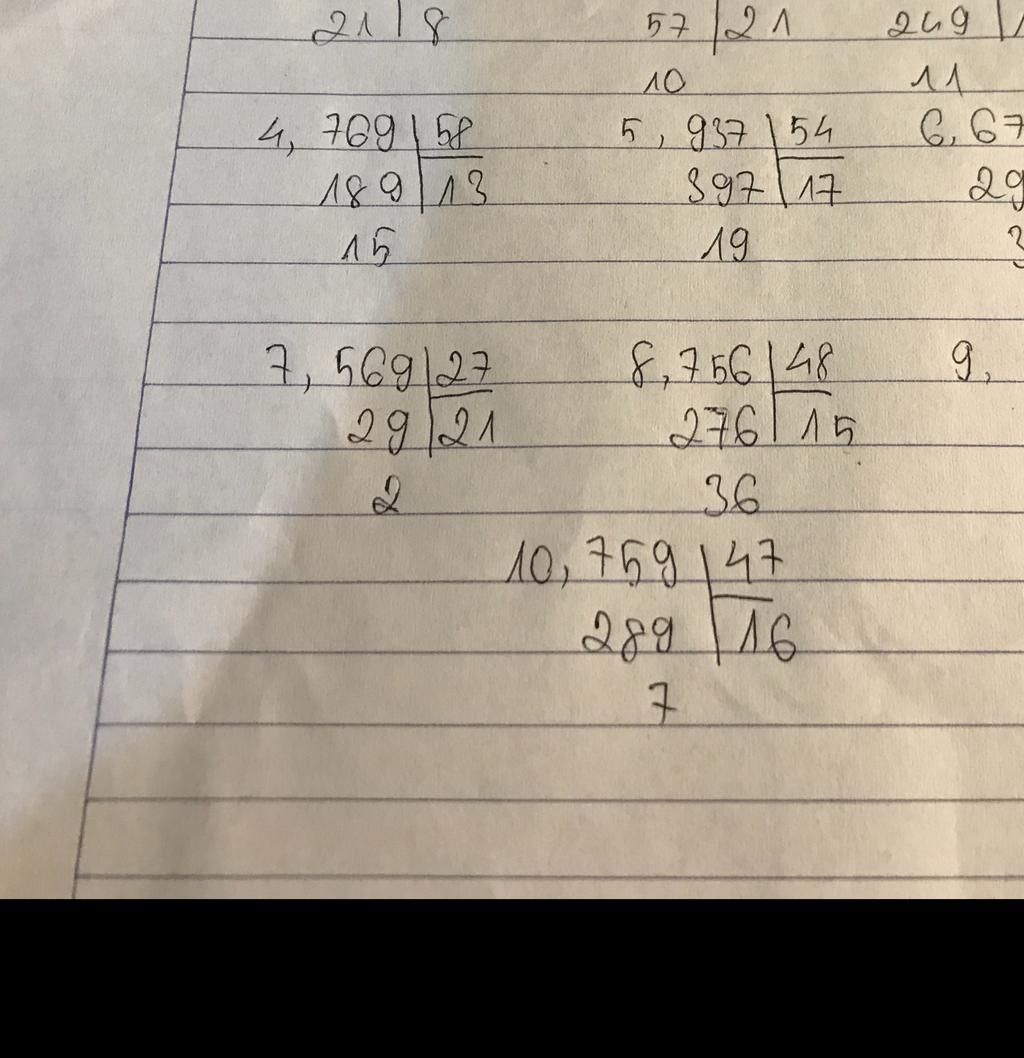 21 | 8 57 | 21 249
10 11
4, 769 | 58 5, 937 | 54 6, 67
189 | 13 397 | 17 29
15 19
7, 569 | 27 8, 756 | 48 9,
29 | 21 276 | 15
2 36
10, 759 | 47
289 | 16
7